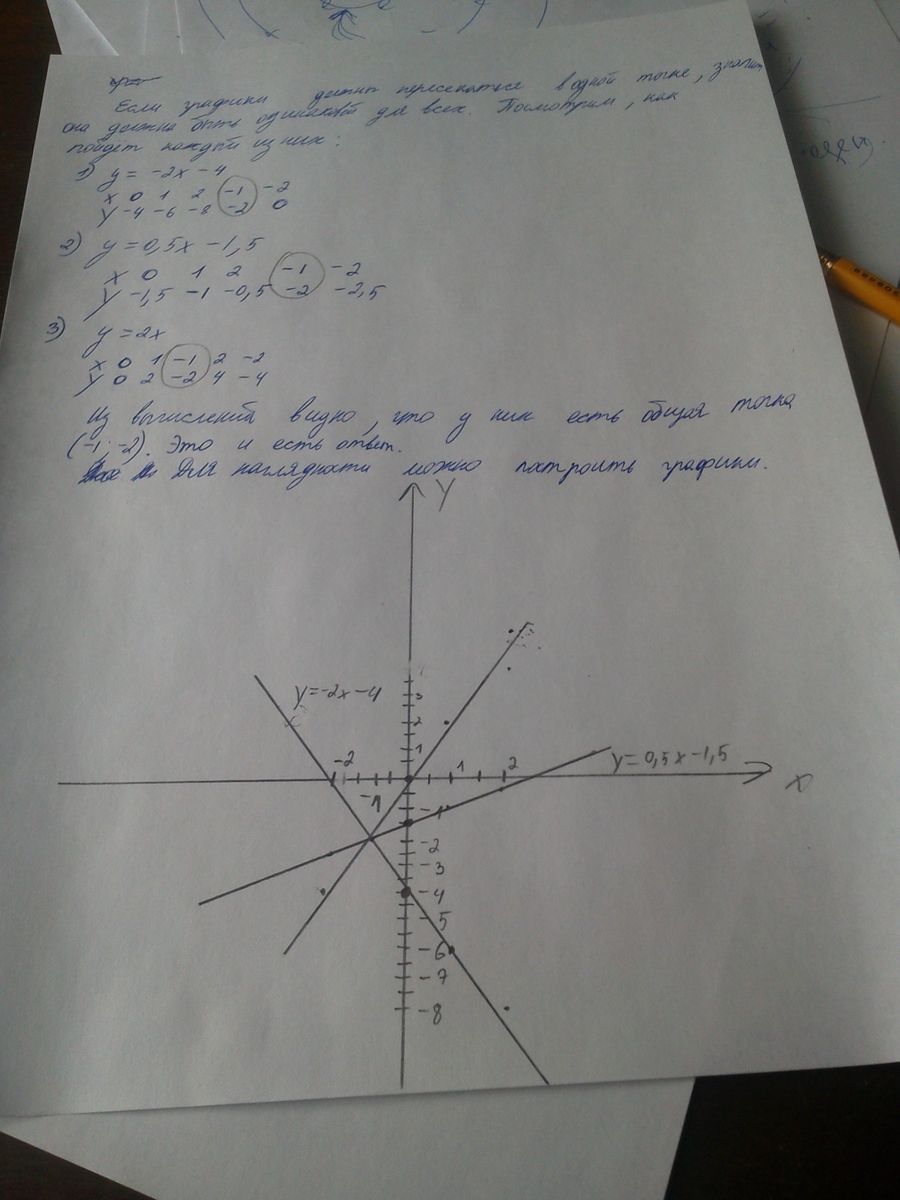 Если графики должны пересекаться в одной точке, значит
она должна быть одинаковой для всех. Посмотрим, как
пойдёт каждый из них:
1) y = -2x - 4
x 0 1 2 -1 -2
y -4 -6 -8 -2 0
2) y = 0,5x - 1,5
x 0 1 2 -1 -2
y -1,5 -1 -0,5 -2 -2,5
3) y = 2x
x 0 1 -1 2 -2
y 0 2 -2 4 -4
Из вычислений видно, что у них есть общая точка
(-1; -2). Это и есть ответ.
Для наглядности можно построить графики.
Y
y=-2x-4
3
2
1
-2
1 2
y=0,5x-1,5
x
-1
-1
-2
-3
-4
5
-6
-7
-8